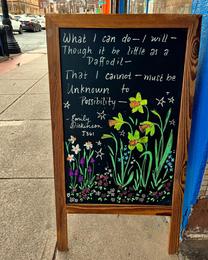 What I can do—I will—
Though it be little as a
Daffodil—
That I cannot—must be
Unknown to
Possibility—
- Emily
Dickinson